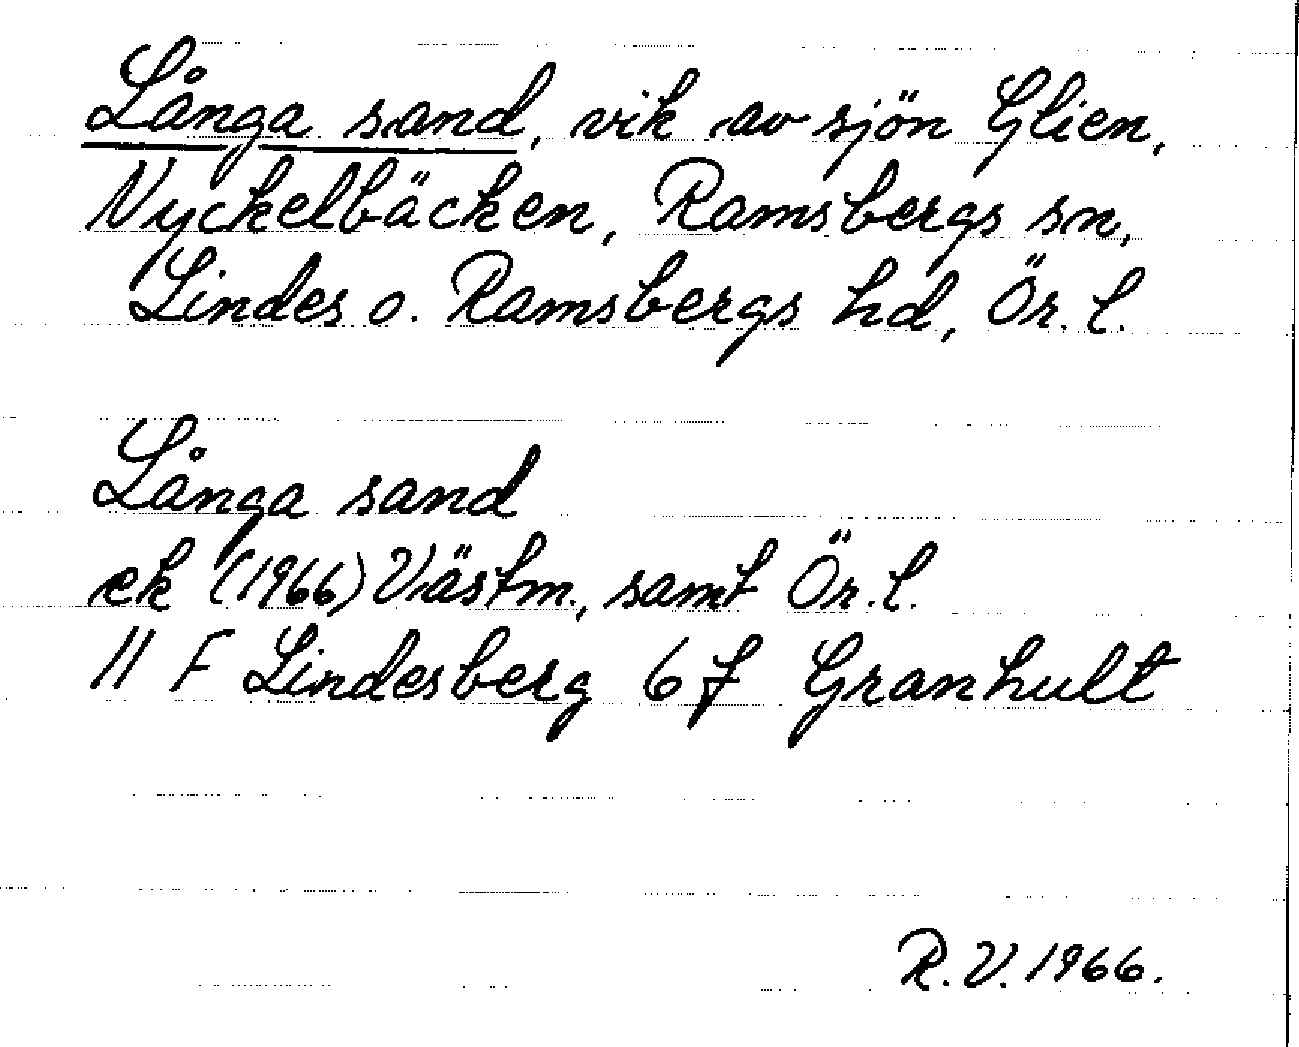 Långa sand, vik av sjön Glien,
Nyckelbäcken, Ramsbergs sn,
Lindes o. Ramsbergs hd, Ör. l.
Långa sand
ek (1966) Västm., samt Ör. l.
11 F Lindesberg 6 f Granhult
R. V. 1966.